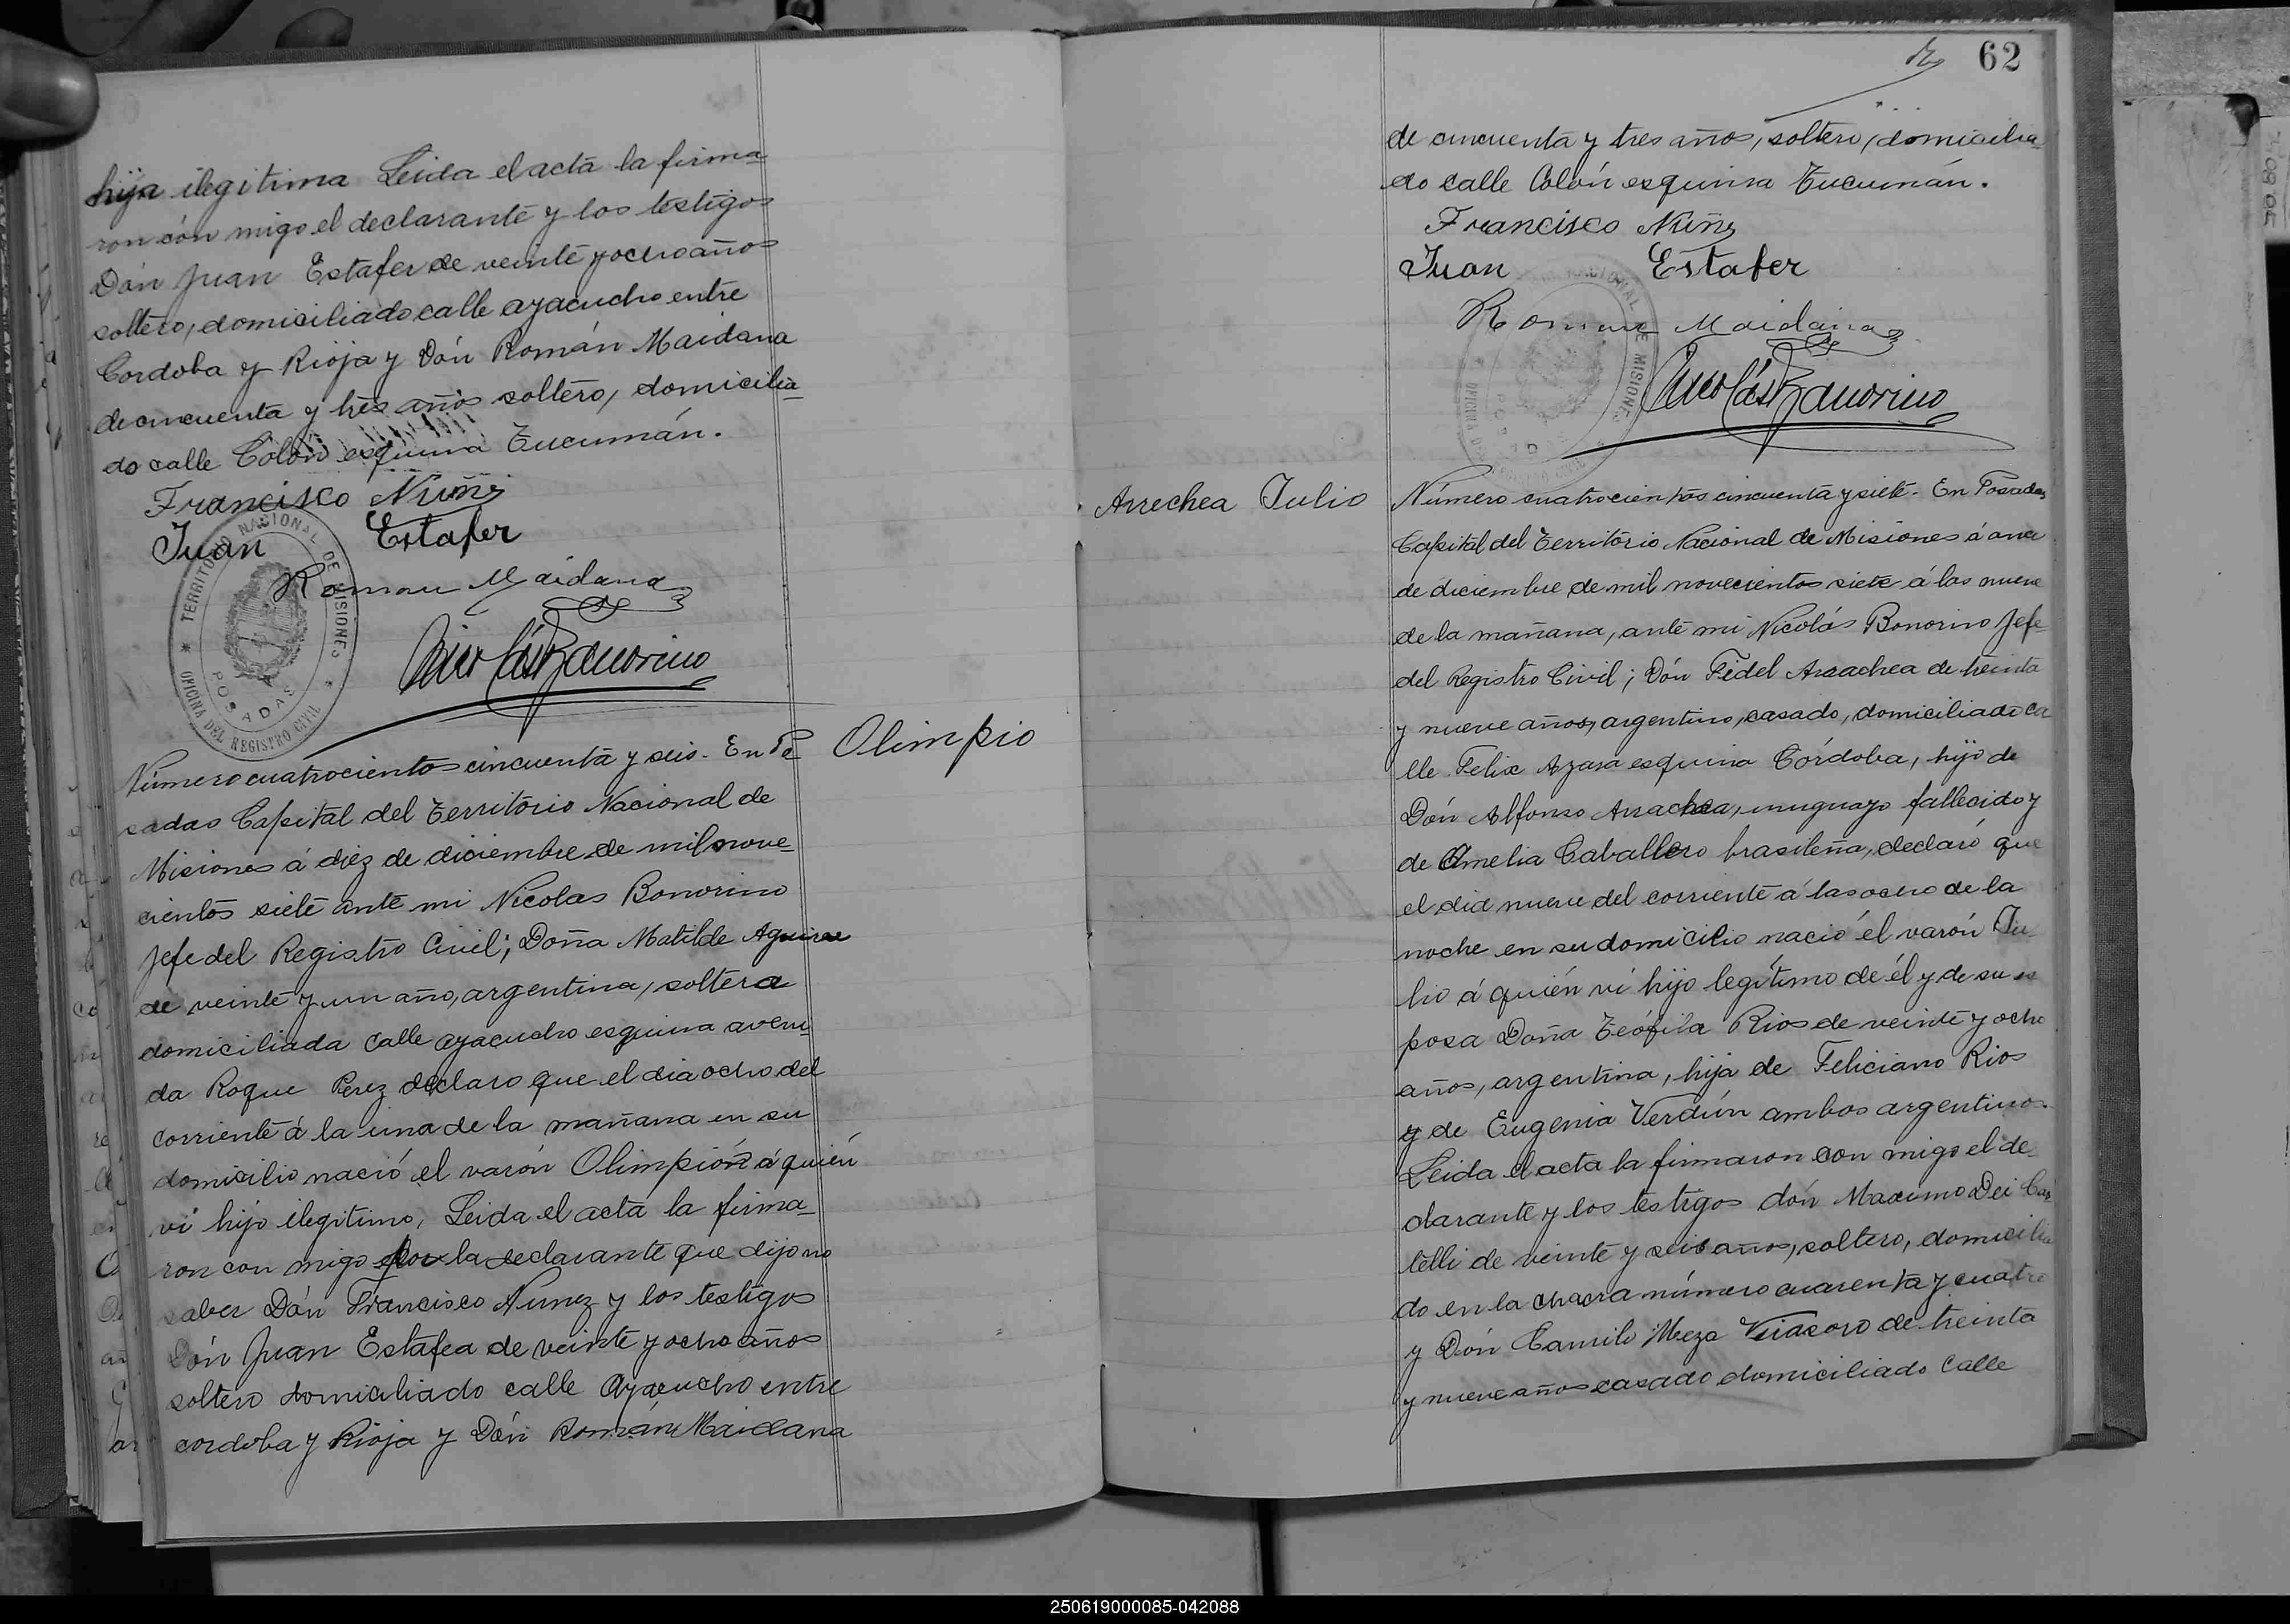 hija ilegitima Leida el acta la firma-
ron con migo el declarante y los testigos
Dón Juan Estafer de veinte y ocho años
soltero, domiciliado calle ayacucho entre
Cordoba y Rioja y Dón Román Maidana
de cincuenta y tres años soltero, domicilia-
do calle Colón esquina Tucumán.
Francisco Nuñez
Juan Estafer
Roman Maidana
Nicolás Bonorino
TERRITORIO NACIONAL DE MISIONES
OFICINA DEL REGISTRO CIVIL
POSADAS
Número cuatrocientos cincuenta y seis. En Po-
sadas Capital del Territorio Nacional de
Misiones á diez de diciembre de mil nove-
cientos siete ante mi Nicolas Bonorino
Jefe del Registro Civil; Doña Matilde Aguirre
de veinte y un año, argentina, soltera
domiciliada calle ayacucho esquina aveni-
da Roque Perez declaro que el dia ocho del
corriente á la una de la mañana en su
domicilio nació el varón Olimpión á quién
vi hijo ilegitimo, Leida el acta la firma-
ron con migo por la declarante que dijo no
saber Dón Francisco Nunez y los testigos
Dón Juan Estafea de veinte y ocho años
soltero domiciliado calle Ayacucho entre
cordoba y Rioja y Dón Román Maidana
Olimpio
62
de cincuenta y tres años, soltero, domicilia-
do calle Colón esquina Tucumán.
Francisco Nuñez
Juan Estafer
Roman Maidana
Nicolás Bonorino
Arrechea Julio
Número cuatrocientos cincuenta y siete. En Posadas
Capital del Territorio Nacional de Misiones á once
de diciembre de mil novecientos siete á las nueve
de la mañana, ante mi Nicolás Bonorino Jefe
del Registro Civil; Dón Fidel Arrachea de treinta
y nueve años, argentino, casado, domiciliado ca-
lle Felix Azara esquina Córdoba, hijo de
Dón Alfonso Arrachea, uruguayo fallecido y
de Amelia Caballero brasileña, declaró que
el dia nueve del corriente á las ocho de la
noche en su domicilio nació el varón Ju-
lio á quién vi hijo legítimo de él y de su es-
posa Doña Teófila Rios de veinte y ocho
años, argentina, hija de Feliciano Rios
y de Eugenia Verdún ambos argentinos.
Leida el acta la firmaron con migo el de-
clarante y los testigos dón Maximo Dei Cas-
telli de veinte y seis años, soltero, domicilia-
do en la chacra número cuarenta y cuatro
y Dón Camilo Meza Viasoro de treinta
y nueve años casado domiciliado Calle
250619000085-042088